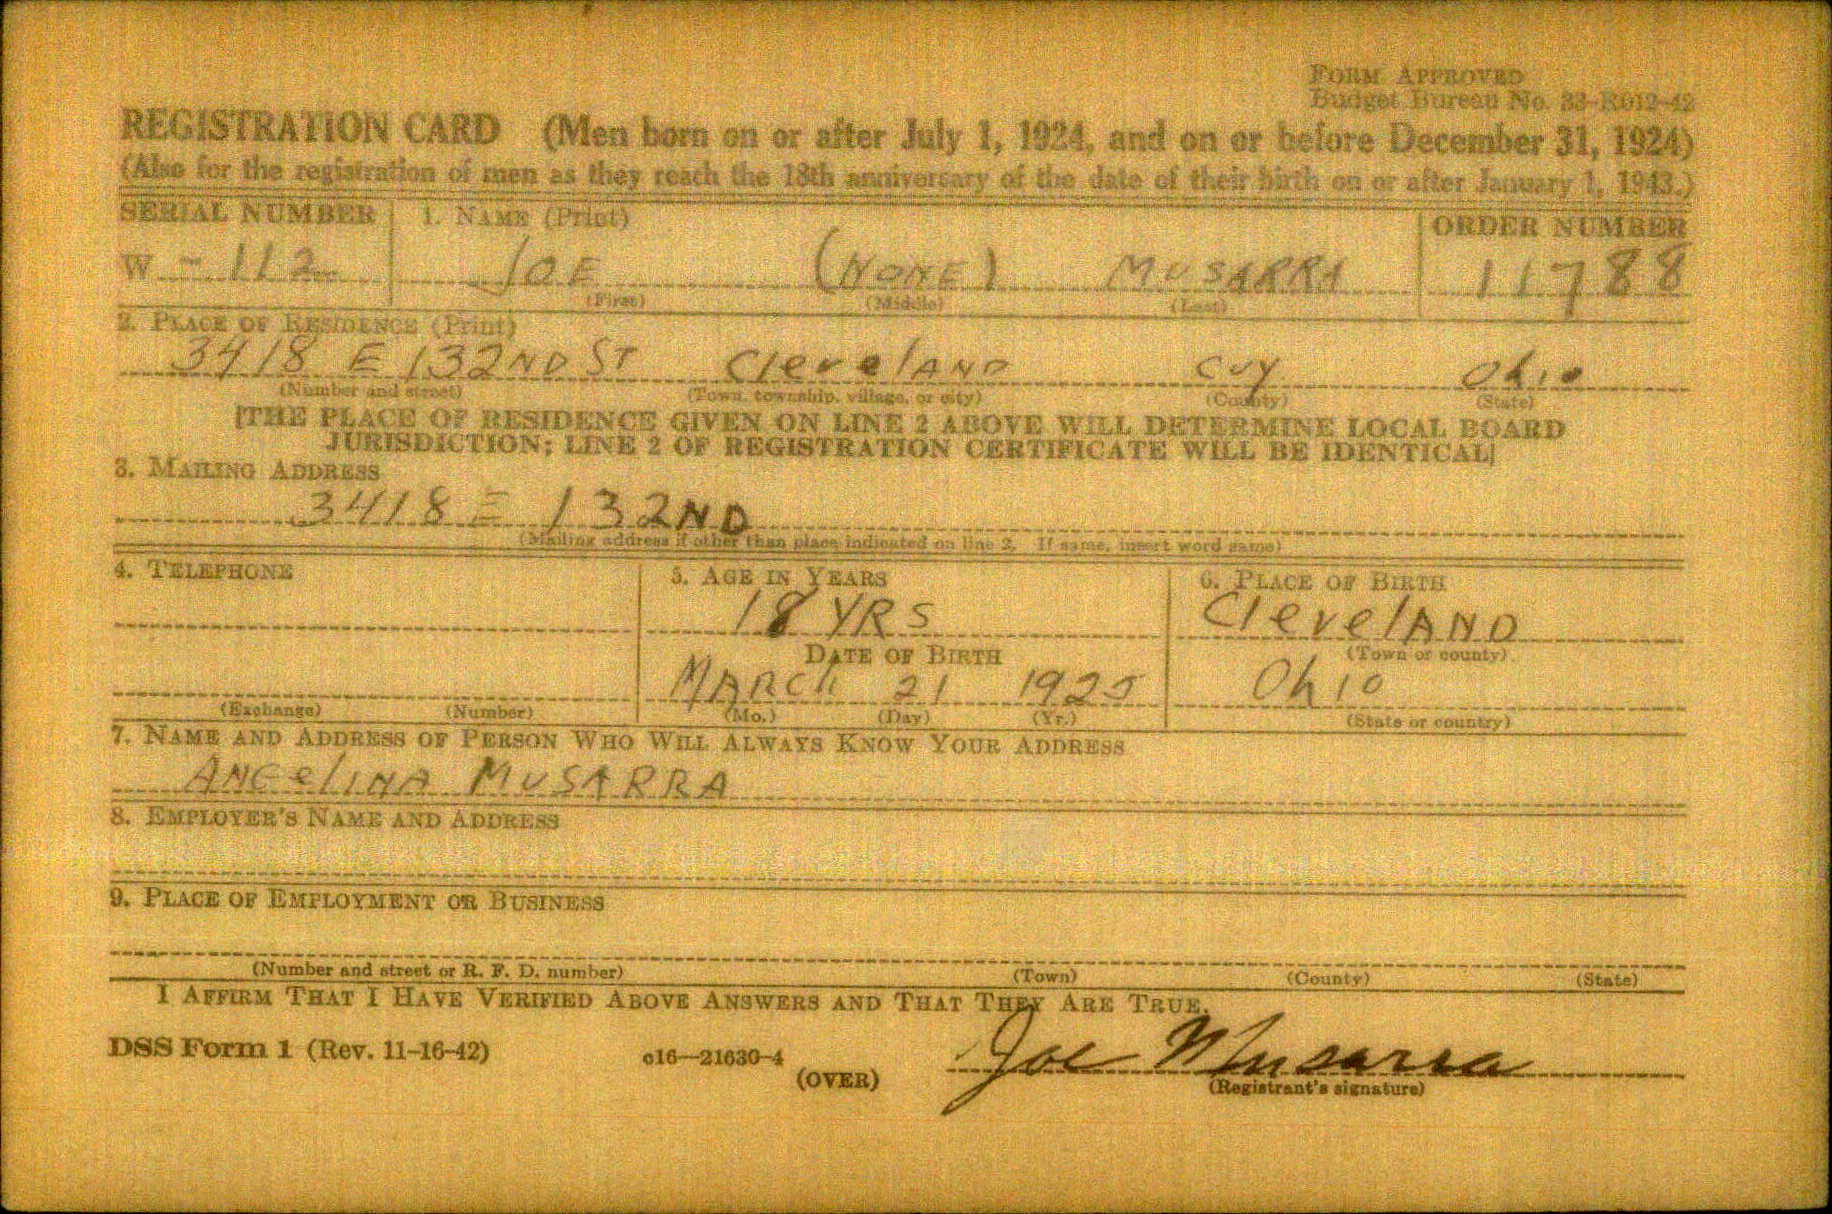 FORM APPROVED
Budget Bureau No. 33-R012-42
REGISTRATION CARD (Men born on or after July 1, 1924, and on or before December 31, 1924)
(Also for the registration of men as they reach the 18th anniversary of the date of their birth on or after January 1, 1943.)
SERIAL NUMBER 1. NAME (Print) ORDER NUMBER
W - 112 JOE (NONE) MUSARRA 11788
(First) (Middle) (Last)
2. PLACE OF RESIDENCE (Print)
3418 E 132ND ST CleveLAND CUY Ohio
(Number and street) (Town, township, village, or city) (County) (State)
[THE PLACE OF RESIDENCE GIVEN ON LINE 2 ABOVE WILL DETERMINE LOCAL BOARD
JURISDICTION; LINE 2 OF REGISTRATION CERTIFICATE WILL BE IDENTICAL]
3. MAILING ADDRESS
3418 E 132ND
(Mailing address if other than place indicated on line 2. If same, insert word same)
4. TELEPHONE 5. AGE IN YEARS 6. PLACE OF BIRTH
18 YRS CleveLAND
DATE OF BIRTH (Town or county)
MARCH 21 1925 Ohio
(Exchange) (Number) (Mo.) (Day) (Yr.) (State or country)
7. NAME AND ADDRESS OF PERSON WHO WILL ALWAYS KNOW YOUR ADDRESS
ANGELINA MUSARRA
8. EMPLOYER'S NAME AND ADDRESS
9. PLACE OF EMPLOYMENT OR BUSINESS
(Number and street or R. F. D. number) (Town) (County) (State)
I AFFIRM THAT I HAVE VERIFIED ABOVE ANSWERS AND THAT THEY ARE TRUE.
DSS Form 1 (Rev. 11-16-42) c16—21630-4 Joe Musarra
(OVER) (Registrant's signature)